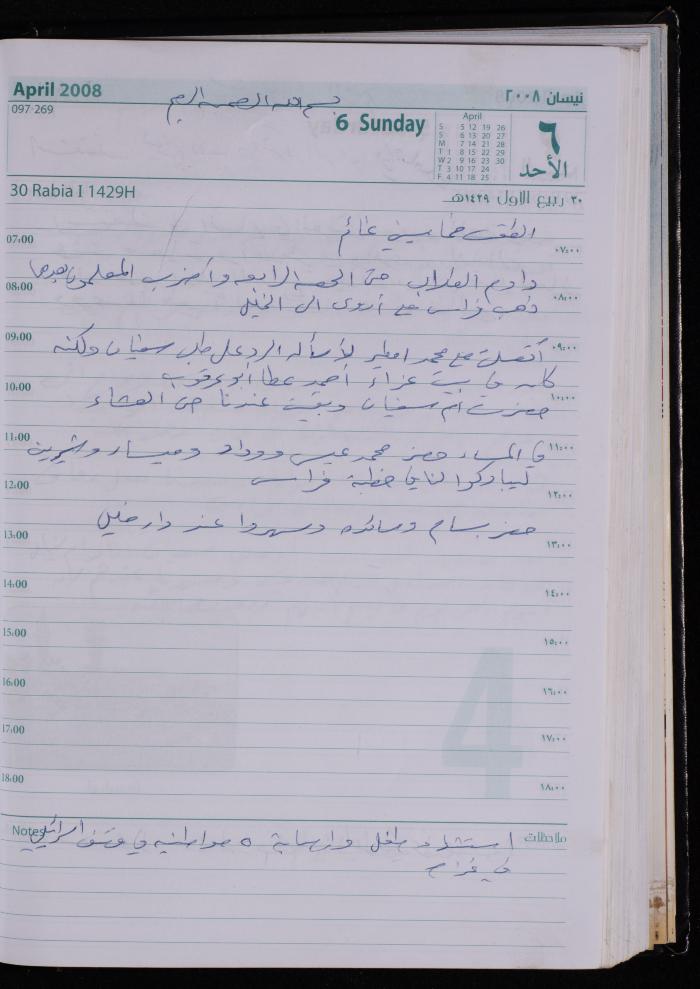 April 2008 نيسان ٢٠٠٨
بسم الله الرحمن الرحيم
097-269
6 Sunday
April
S 5 12 19 26
S 6 13 20 27
M 7 14 21 28
T 1 8 15 22 29
W 2 9 16 23 30
T 3 10 17 24
F 4 11 18 25
٦
الأحد
30 Rabia I 1429H ٣٠ ربيع الاول ١٤٢٩هـ
الطقس خماسيني غائم
07:00 ٠٧:٠٠
داوم الطلاب حتى الحصة الرابعة وأضرب المعلمون بعدها
08:00 ٠٨:٠٠
ذهب فراس مع أروى الى الخليل
09:00 ٠٩:٠٠
اتصلت مع محمد لأسأله الرد على طلب سفيان ولكنه
كان في بيت عزاء أحمد عطا أبو عرقوب
10:00 ١٠:٠٠
حضرت أم سفيان وبقيت عندنا حتى العشاء
11:00 ١١:٠٠
في المساء حضر محمد عيسى ووداد وميسار وشيرين
ليباركوا لنا في خطبة فراس
12:00 ١٢:٠٠
حضر بسام وسائده وسهروا عند دار خليل
13:00 ١٣:٠٠
14:00 ١٤:٠٠
15:00 ١٥:٠٠
16:00 ١٦:٠٠
4
17:00 ١٧:٠٠
18:00 ١٨:٠٠
Notes ملاحظات
استشهاد طفل وإصابة ٥ مواطنين في قصف اسرائيلي
في غزة